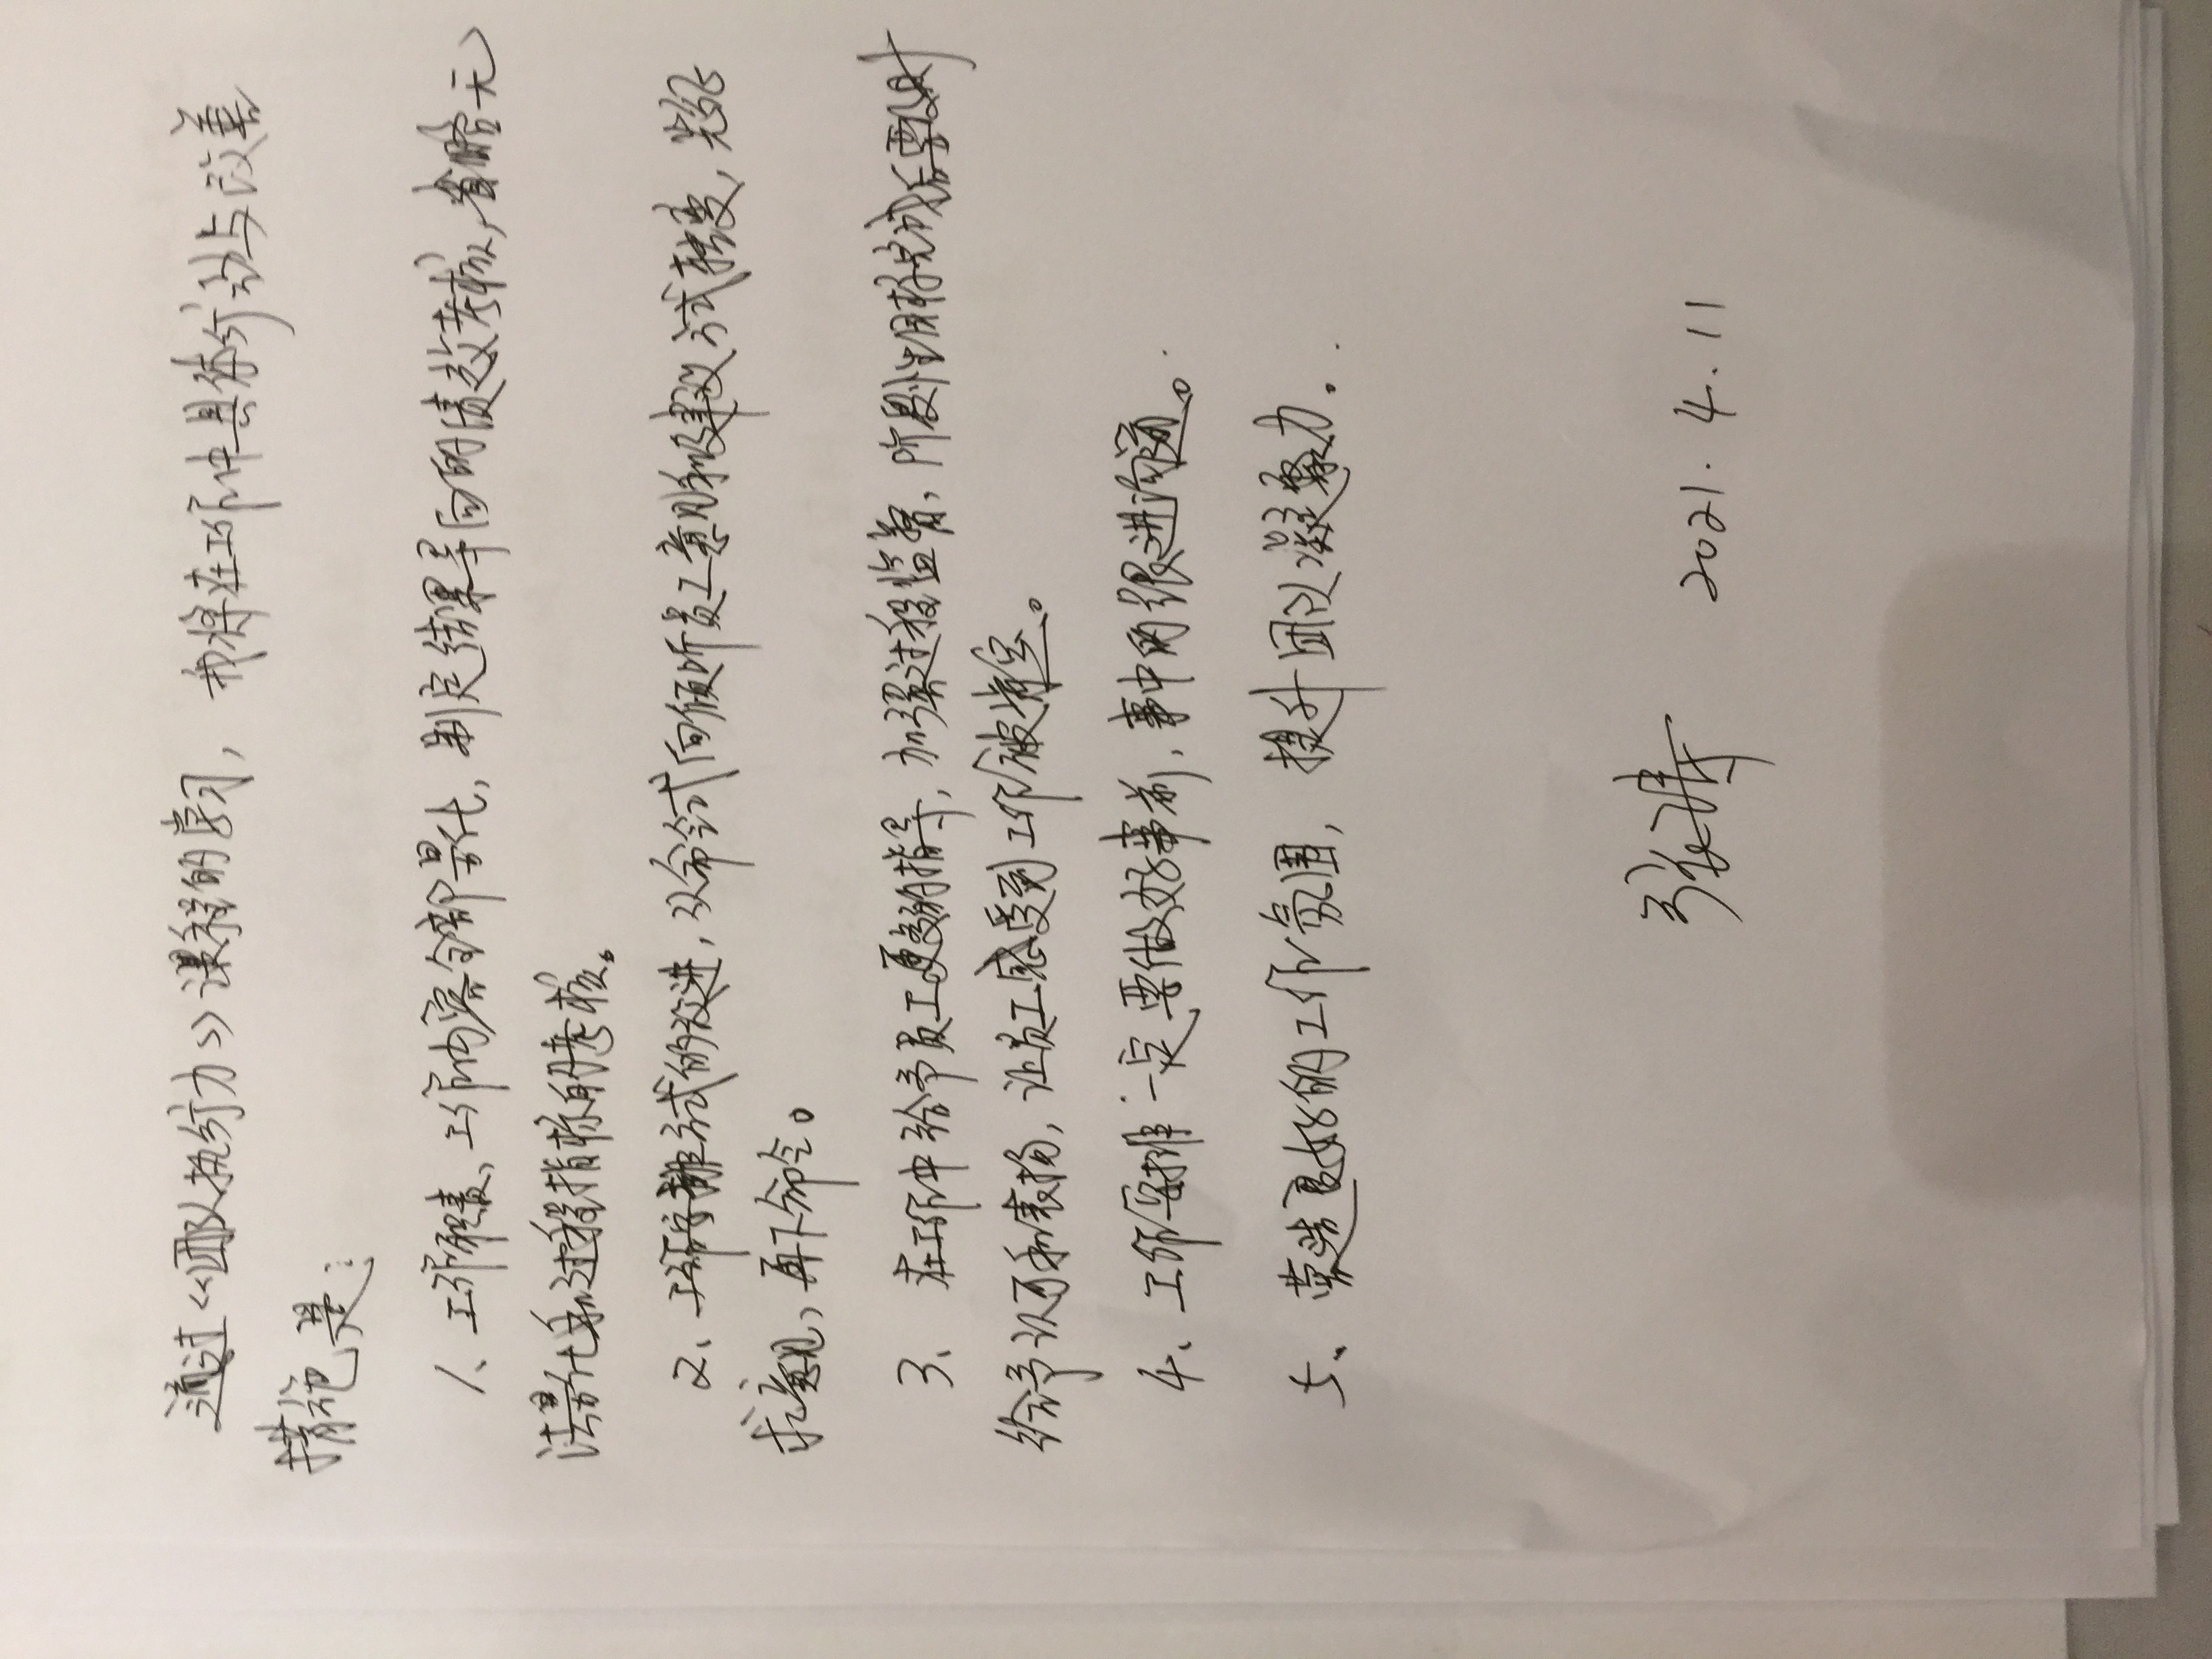 通过《团队执行力》课程的学习，我将在工作中具体行动与改善
措施是：
1、工作职责、工作内容全部量化，制定结果导向的绩效考核，省略无
法量化和过程指标的考核。
2、工作安排方式的改进，从命令式向倾听员工意见和建议方式转变，先征
求意见，再下命令。
3、在工作中给予员工更多的指导，加强过程监督，阶段性目标完成后要及时
给予认可和表扬，让员工感受到工作被肯定。
4、工作安排一定要做好事前，事中的跟进沟通。
5、营造良好的工作氛围，提升团队凝聚力。
张涛 2021.4.11